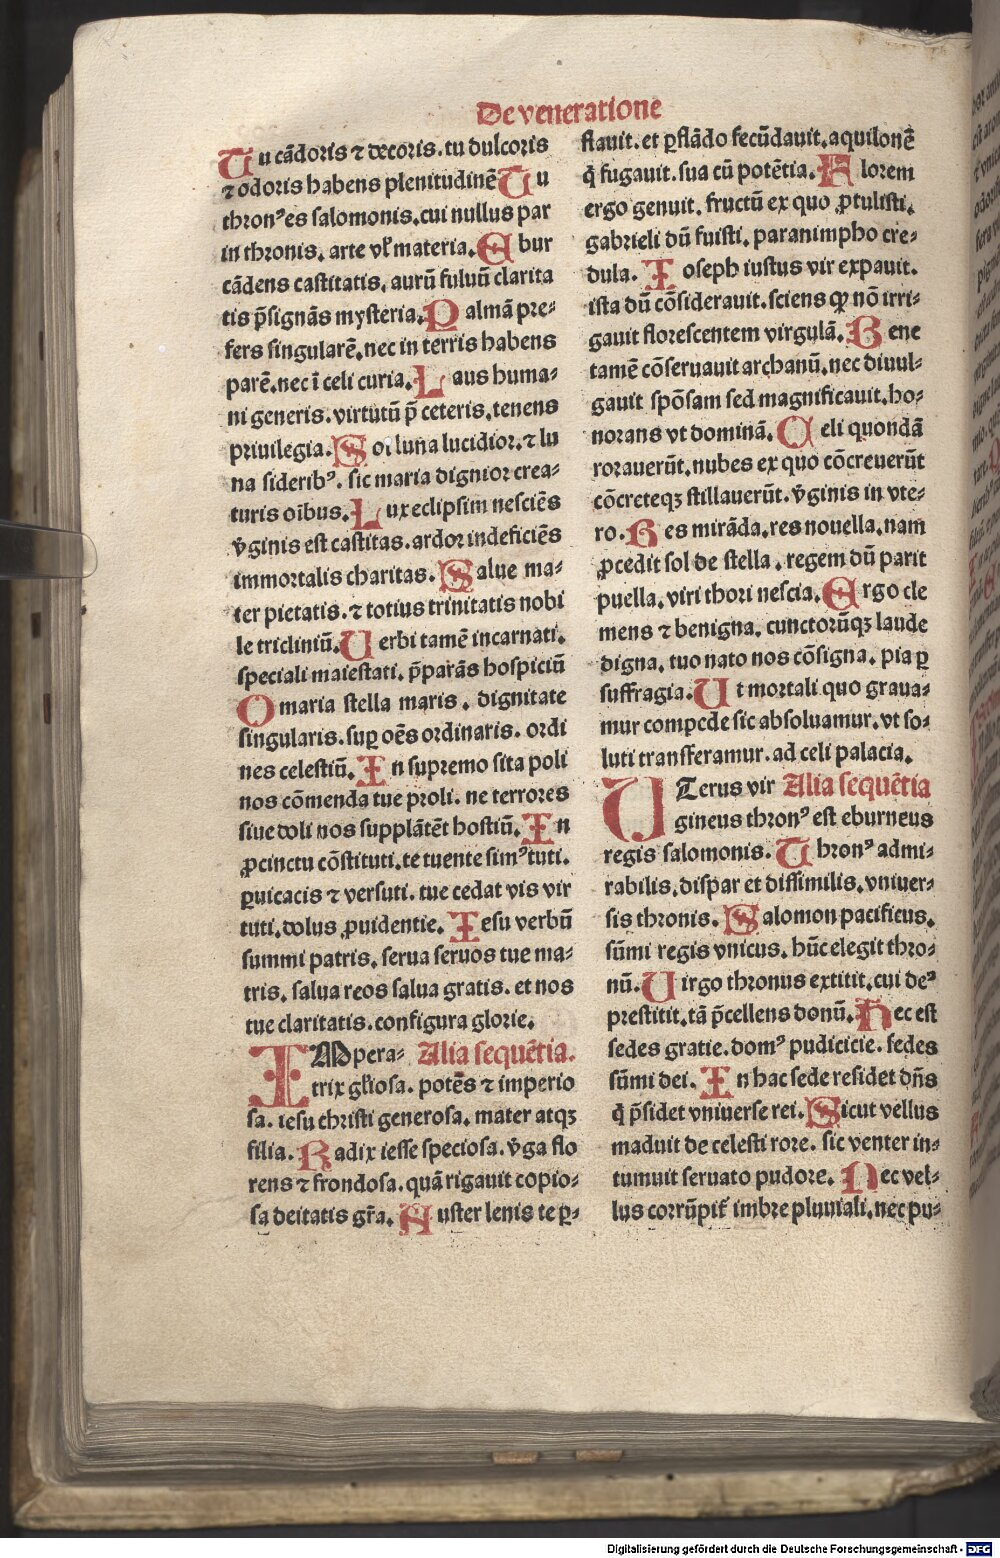 De veneratione
Tu cãdoris ⁊ decoris. tu dulcoris
⁊ odoris habens plenitudinẽ Tu
thronꝰ es salomonis. cui nullus par
in thronis. arte vl̓ materia. Ebur
cãdens castitatis. aurũ fuluũ clarita
tis p̃signãs mysteria. Palmã pre⸗
fers singularẽ. nec in terris habens
parẽ. nec ĩ celi curia. Laus huma⸗
ni generis. virtutũ p̃ ceteris. tenens
priuilegia. Sol luna lucidior. ⁊ lu
na sideribꝰ. sic maria dignior crea⸗
turis oĩbus. Lux eclipsim nesciẽs
v̓ginis est castitas. ardor indeficiẽs
immortalis charitas. Salue ma⸗
ter pietatis. ⁊ totius trinitatis nobi
le tricliniũ. Uerbi tamẽ incarnati.
speciali maiestati. p̃parãs hospiciũ
O maria stella maris. dignitate
singularis. suꝑ oẽs ordinaris. ordi
nes celestiũ. In supremo sita poli
nos cõmenda tue proli. ne terrores
siue doli nos supplãtẽt hostiũ. In
ꝓcinctu cõstituti. te tuente simꝰ tuti.
ꝑuicacis ⁊ versuti. tue cedat vis vir
tuti. dolus ꝓuidentie. Iesu verbũ
summi patris. serua seruos tue ma⸗
tris. salua reos salua gratis. et nos
tue claritatis. configura glorie.
IMpera⸗ Alia sequẽtia.
trix gl̓iosa. potẽs ⁊ imperio
sa. iesu christi generosa. mater atqꝫ
filia. Radix iesse speciosa. v̓ga flo
rens ⁊ frondosa. quã rigauit copio⸗
sa deitatis gr̃a. Auster lenis te ꝑ⸗
flauit. et ꝑflãdo fecũdauit. aquilonẽ
q̓ fugauit. sua cũ potẽtia. Florem
ergo genuit. fructũ ex quo ꝓtulisti.
gabrieli dũ fuisti. paranimpho cre⸗
dula. Ioseph iustus vir expauit.
ista dũ cõsiderauit. sciens ꝙ nõ irri⸗
gauit florescentem virgulã. Bene
tamẽ cõseruauit archanũ. nec diuul⸗
gauit spõsam sed magnificauit. ho⸗
norans vt dominã. Celi quondã
rorauerũt. nubes ex quo cõcreuerũt
cõcreteqꝫ stillauerũt. v̓ginis in vte⸗
ro. Res mirãda. res nouella. nam
ꝓcedit sol de stella. regem dũ parit
puella. viri thori nescia. Ergo cle
mens ⁊ benigna. cunctorũqꝫ laude
digna. tuo nato nos cõsigna. pia ꝑ
suffragia. Ut mortali quo graua⸗
mur compede sic absoluamur. vt so⸗
luti transferamur. ad celi palacia.
UTerus vir Alia sequẽtia
gineus thronꝰ est eburneus
regis salomonis. Thronꝰ admi⸗
rabilis. dispar et dissimilis. vniuer⸗
sis thronis. Salomon pacificus.
sũmi regis vnicus. hũc elegit thro⸗
nũ. Uirgo thronus extitit. cui deꝰ
prestitit. tã p̃cellens donũ. Hec est
sedes gratie. domꝰ pudicicie. sedes
sũmi dei. In hac sede residet dñs
q̓ p̃sidet vniuerse rei. Sicut vellus
maduit de celesti rore. sic venter in⸗
tumuit seruato pudore. Nec vel⸗
lus corrũpit̃ imbre pluuiali. nec pu⸗
Digitalisierung gefördert durch die Deutsche Forschungsgemeinschaft - DFG